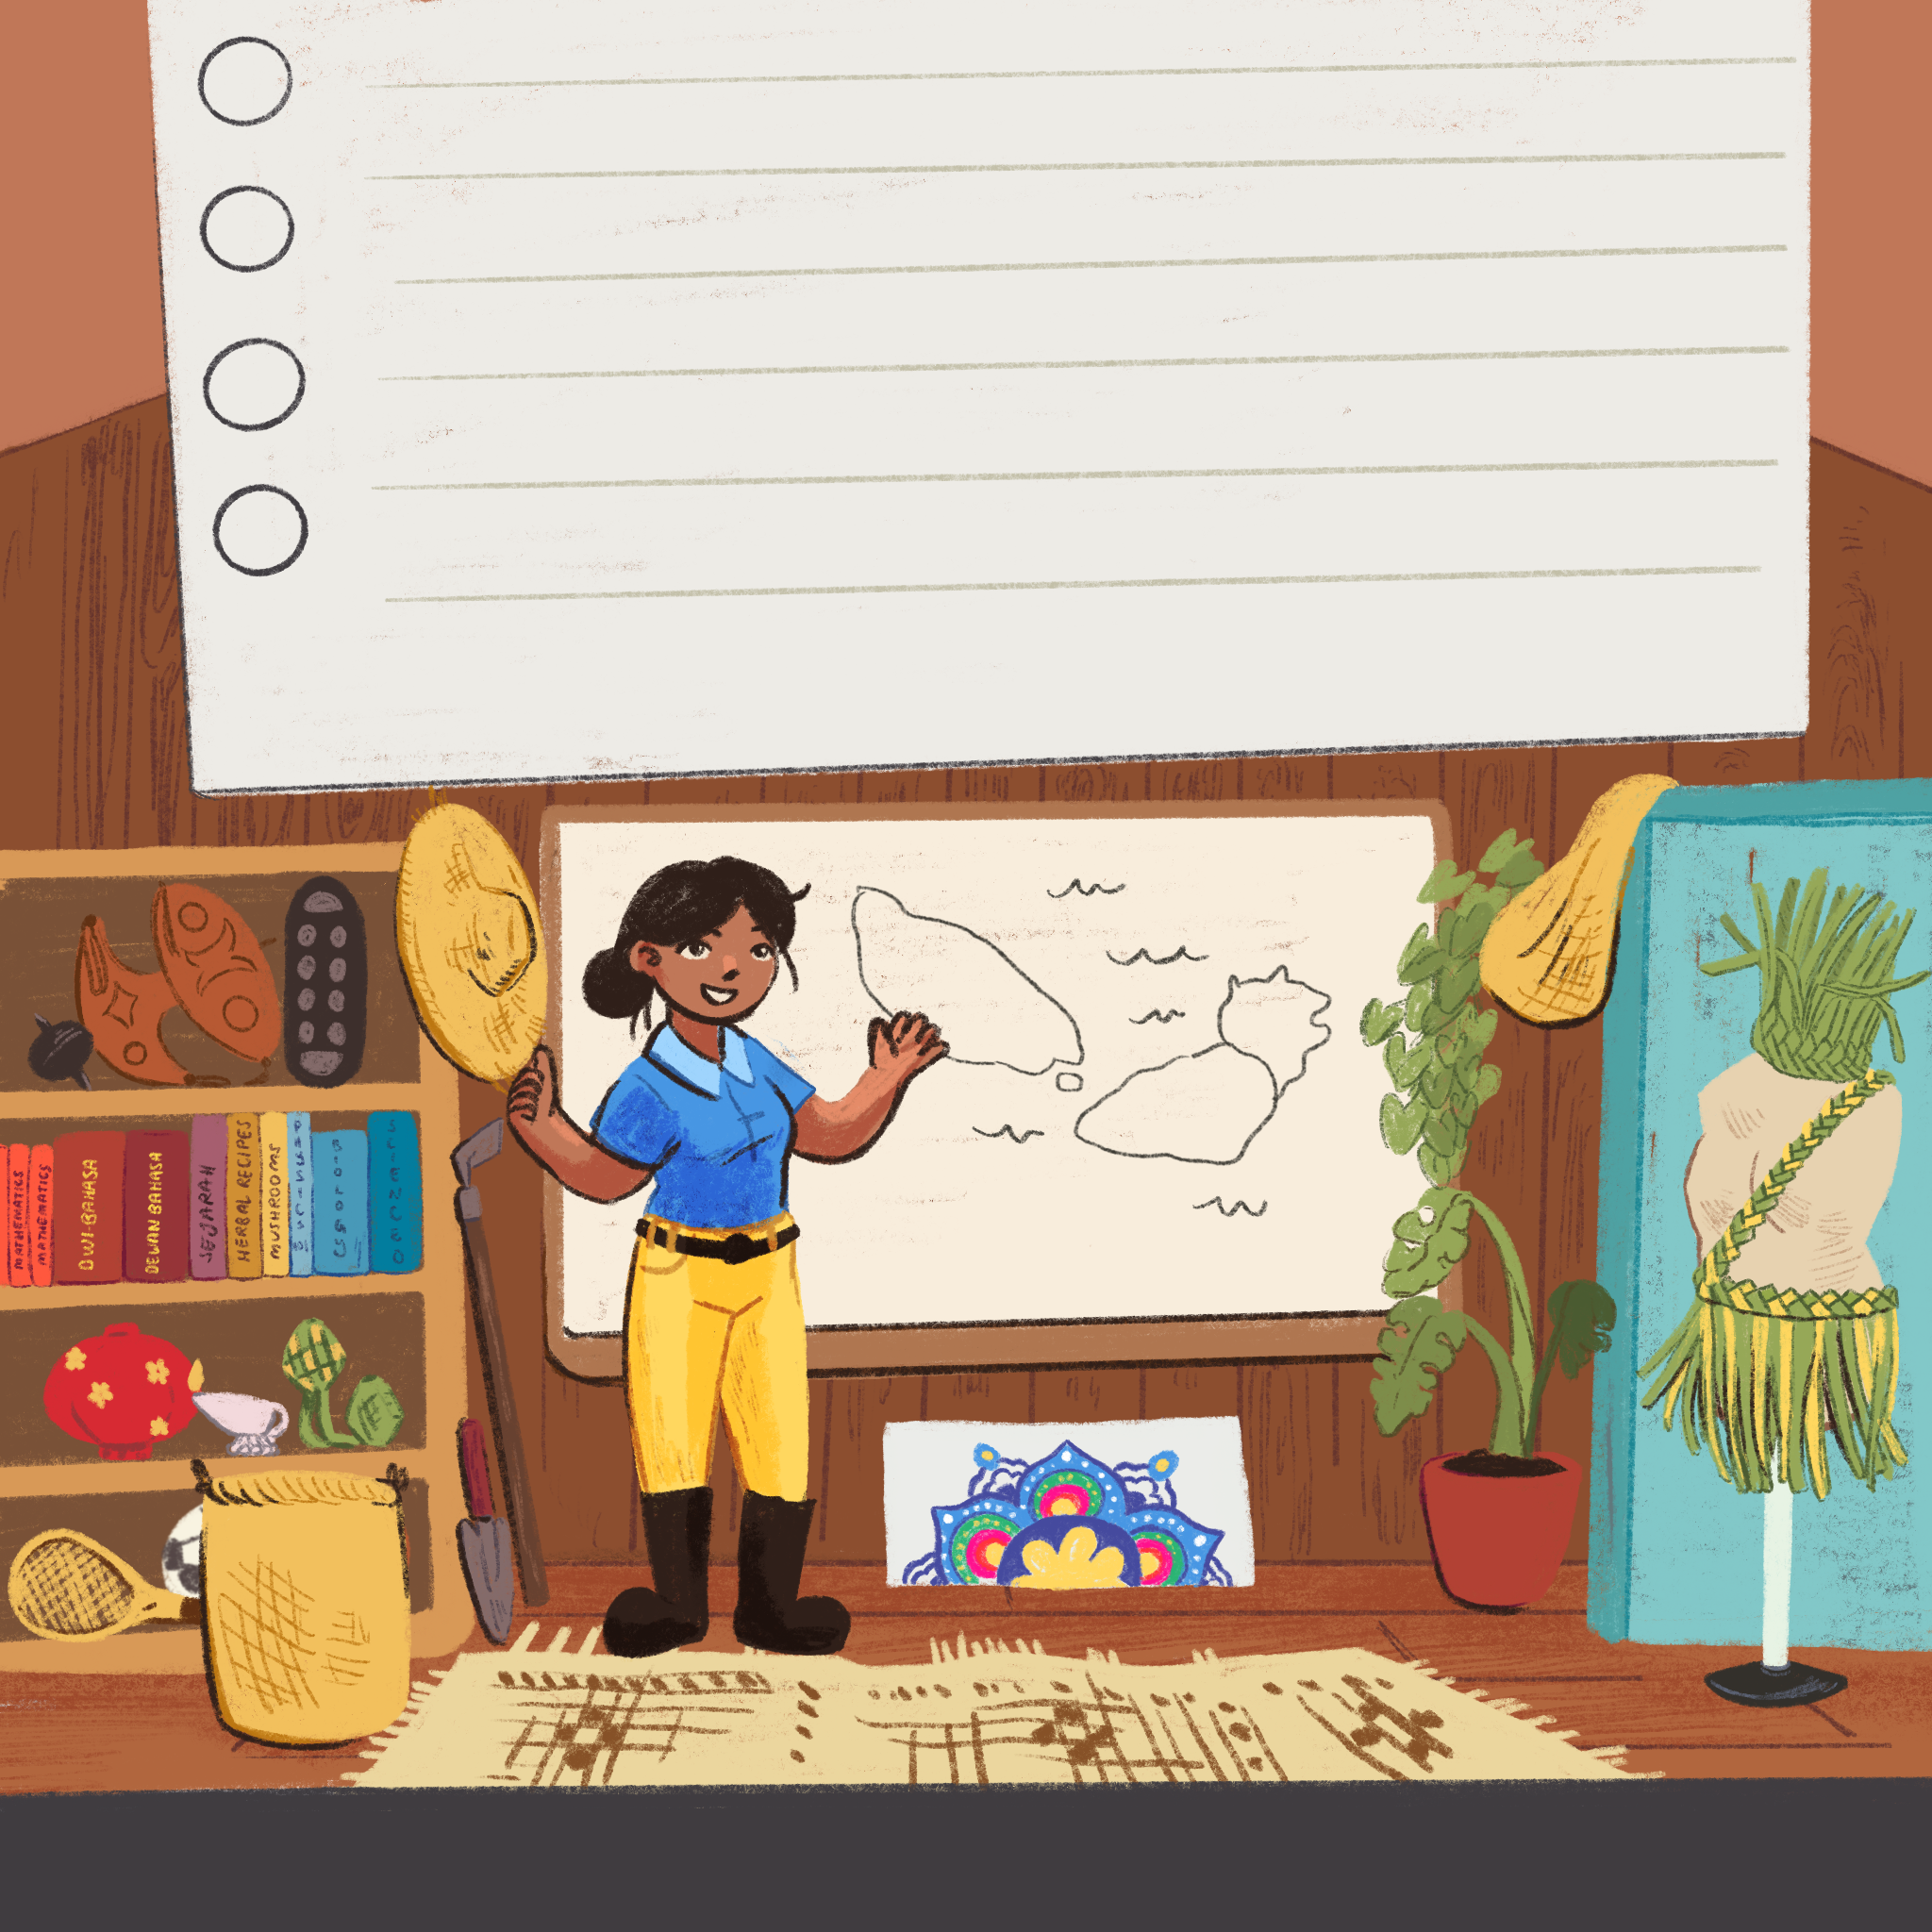 MATHEMATICS
MATHEMATICS
DWI-BAHASA
DEWAN BAHASA
SEJARAH
HERBAL RECIPES
MUSHROOMS